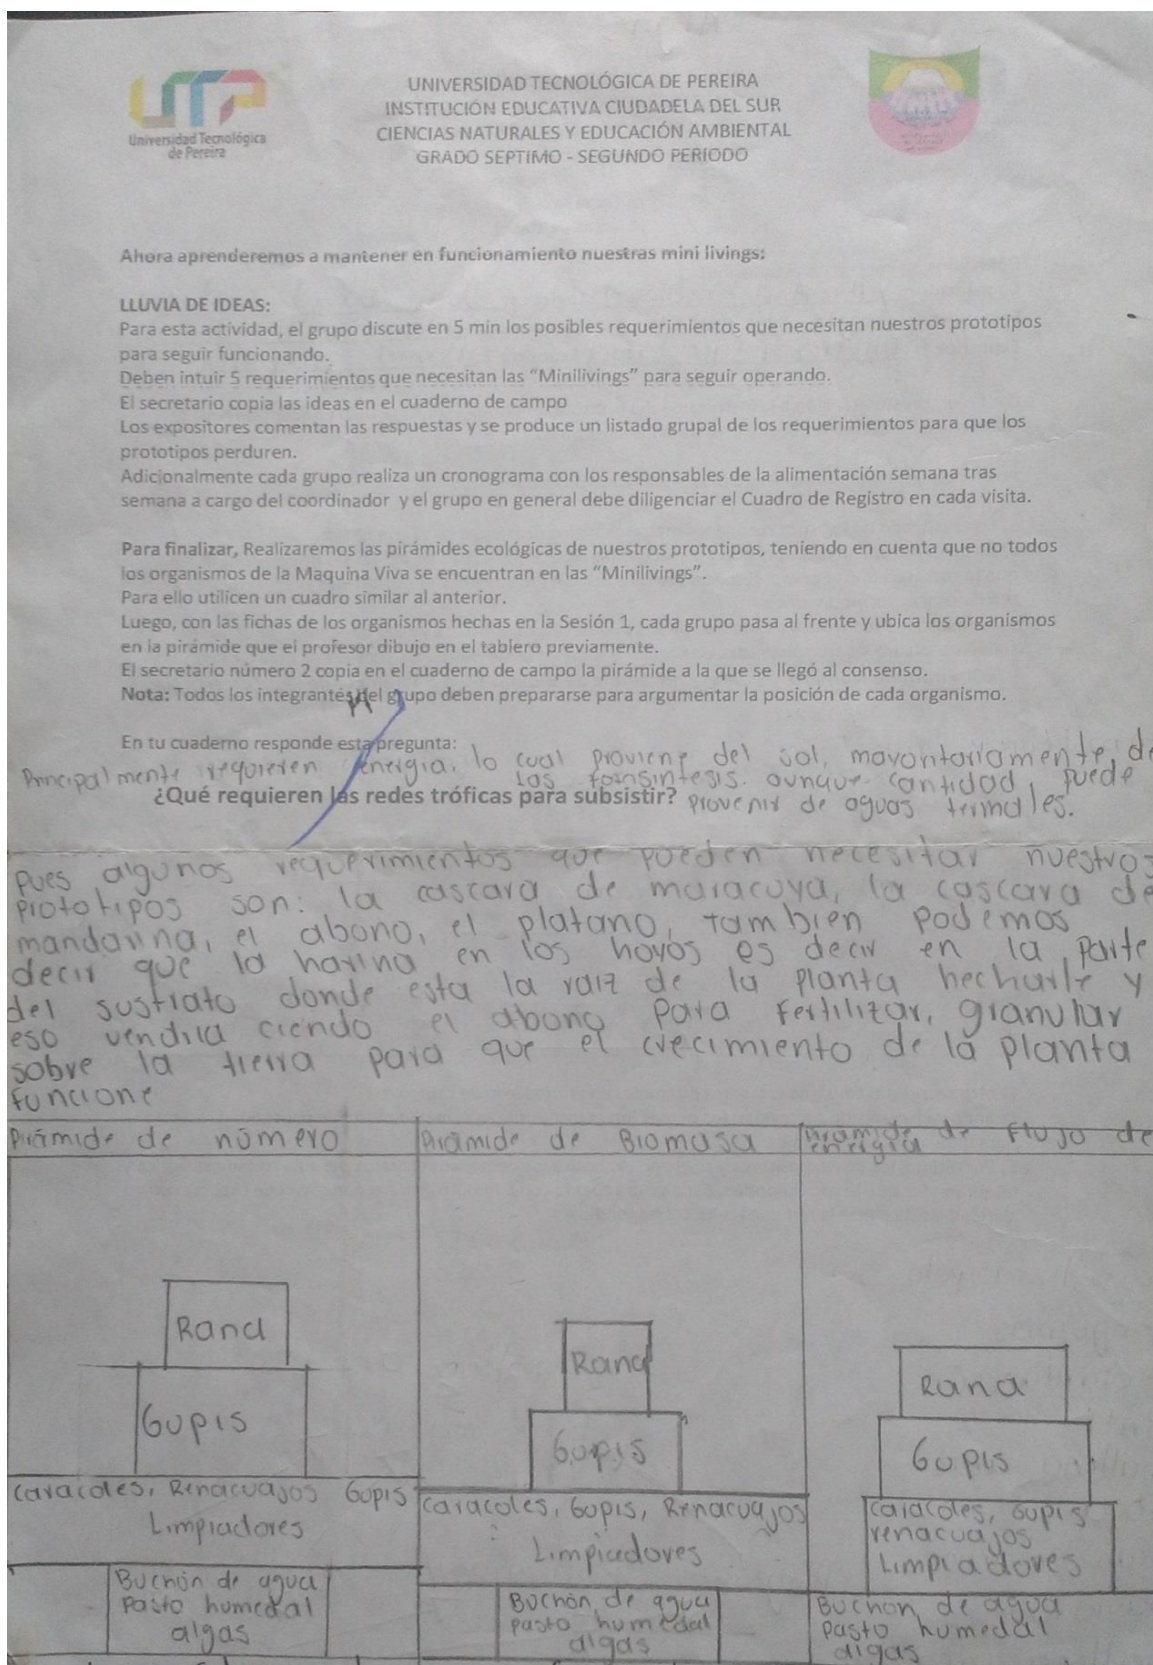 Universidad Tecnológica
de Pereira
UNIVERSIDAD TECNOLÓGICA DE PEREIRA
INSTITUCIÓN EDUCATIVA CIUDADELA DEL SUR
CIENCIAS NATURALES Y EDUCACIÓN AMBIENTAL
GRADO SEPTIMO - SEGUNDO PERIODO
Ahora aprenderemos a mantener en funcionamiento nuestras mini livings:
LLUVIA DE IDEAS:
Para esta actividad, el grupo discute en 5 min los posibles requerimientos que necesitan nuestros prototipos
para seguir funcionando.
Deben intuir 5 requerimientos que necesitan las "Minilivings" para seguir operando.
El secretario copia las ideas en el cuaderno de campo
Los expositores comentan las respuestas y se produce un listado grupal de los requerimientos para que los
prototipos perduren.
Adicionalmente cada grupo realiza un cronograma con los responsables de la alimentación semana tras
semana a cargo del coordinador y el grupo en general debe diligenciar el Cuadro de Registro en cada visita.
Para finalizar, Realizaremos las pirámides ecológicas de nuestros prototipos, teniendo en cuenta que no todos
los organismos de la Maquina Viva se encuentran en las "Minilivings".
Para ello utilicen un cuadro similar al anterior.
Luego, con las fichas de los organismos hechas en la Sesión 1, cada grupo pasa al frente y ubica los organismos
en la pirámide que el profesor dibujo en el tablero previamente.
El secretario número 2 copia en el cuaderno de campo la pirámide a la que se llegó al consenso.
Nota: Todos los integrantes del grupo deben prepararse para argumentar la posición de cada organismo.
En tu cuaderno responde esta pregunta:
Principalmente requieren energia, lo cual proviene del sol, mayontariamente, de
las fotosintesis. aunque cantidad puede
¿Qué requieren las redes tróficas para subsistir? provenir de aguas termales.
pues algunos requerimientos que pueden necesitar nuestros
prototipos son: la cascara de maracuya, la cascara de
mandarina, el abono, el platano, tambien podemos
decir que la harina en los hoyos es decir en la parte
del sustrato donde esta la raiz de la planta hecharle y
eso vendila ciendo el abono para fertilizar, granular
sobre la tierra para que el crecimiento de la planta
funcione
Pirámide de número
Pirámide de Biomasa
Piramide de flujo de
energia
Rana
Gupis
Caracoles, Renacuajos Gupis
Limpiadores
Buchón de agua
Pasto humedal
algas
Rana
Gupis
Caracoles, Gupis, Renacuajos
Limpiadores
Buchón de agua
pasto humedal
algas
Rana
Gupis
Caracoles, Gupis
renacuajos
Limpiadores
Buchon de agua
pasto humedal
algas